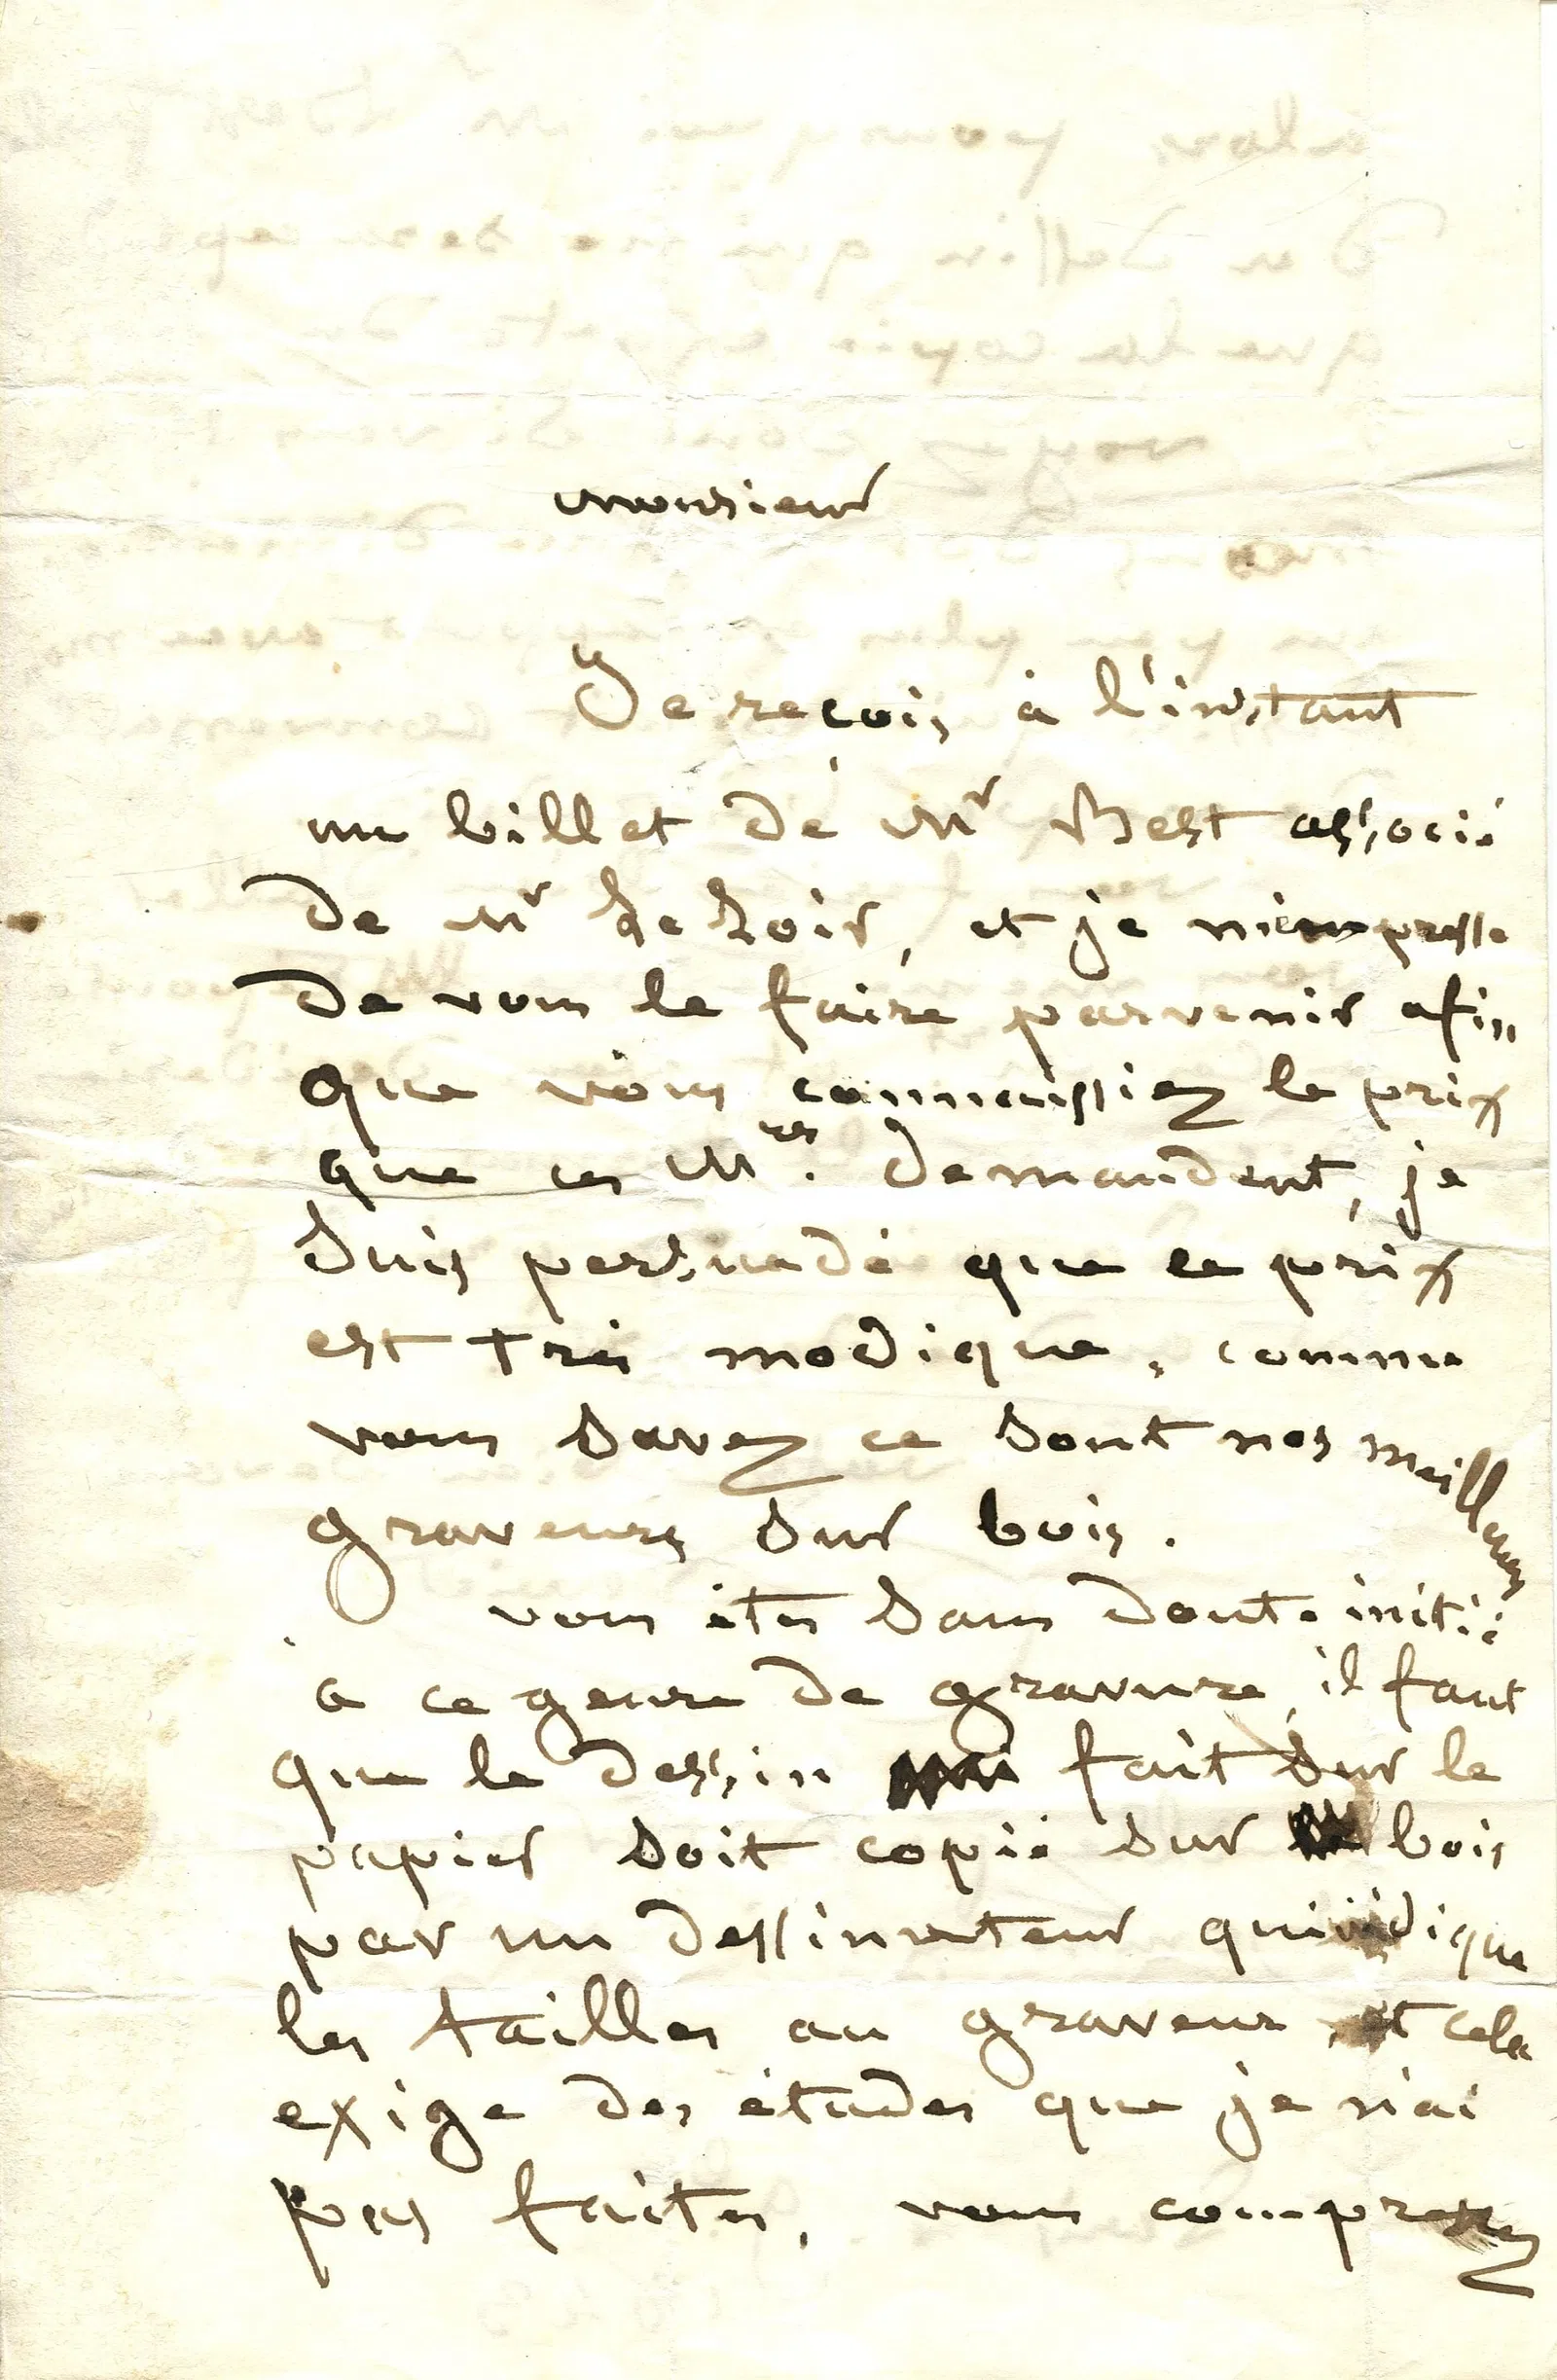 Monsieur
Je reçois à l'instant
un billet de Mr Best associé
de Mr Leloir, et je m'empresse
de vous le faire parvenir afin
que vous connaissiez le prix
que ces Mrs. demandent, je
suis persuadé que ce prix
est très modique, comme
vous savez ce sont nos meilleurs
graveurs sur bois.
vous êtes sans doute initié
a ce genre de gravure, il faut
que le dessin fait sur le
papier soit copié sur bois
par un dessinateur qui indique
les tailles au graveur, et cela
exige des études que je n'ai
pas faites, vous comprenez